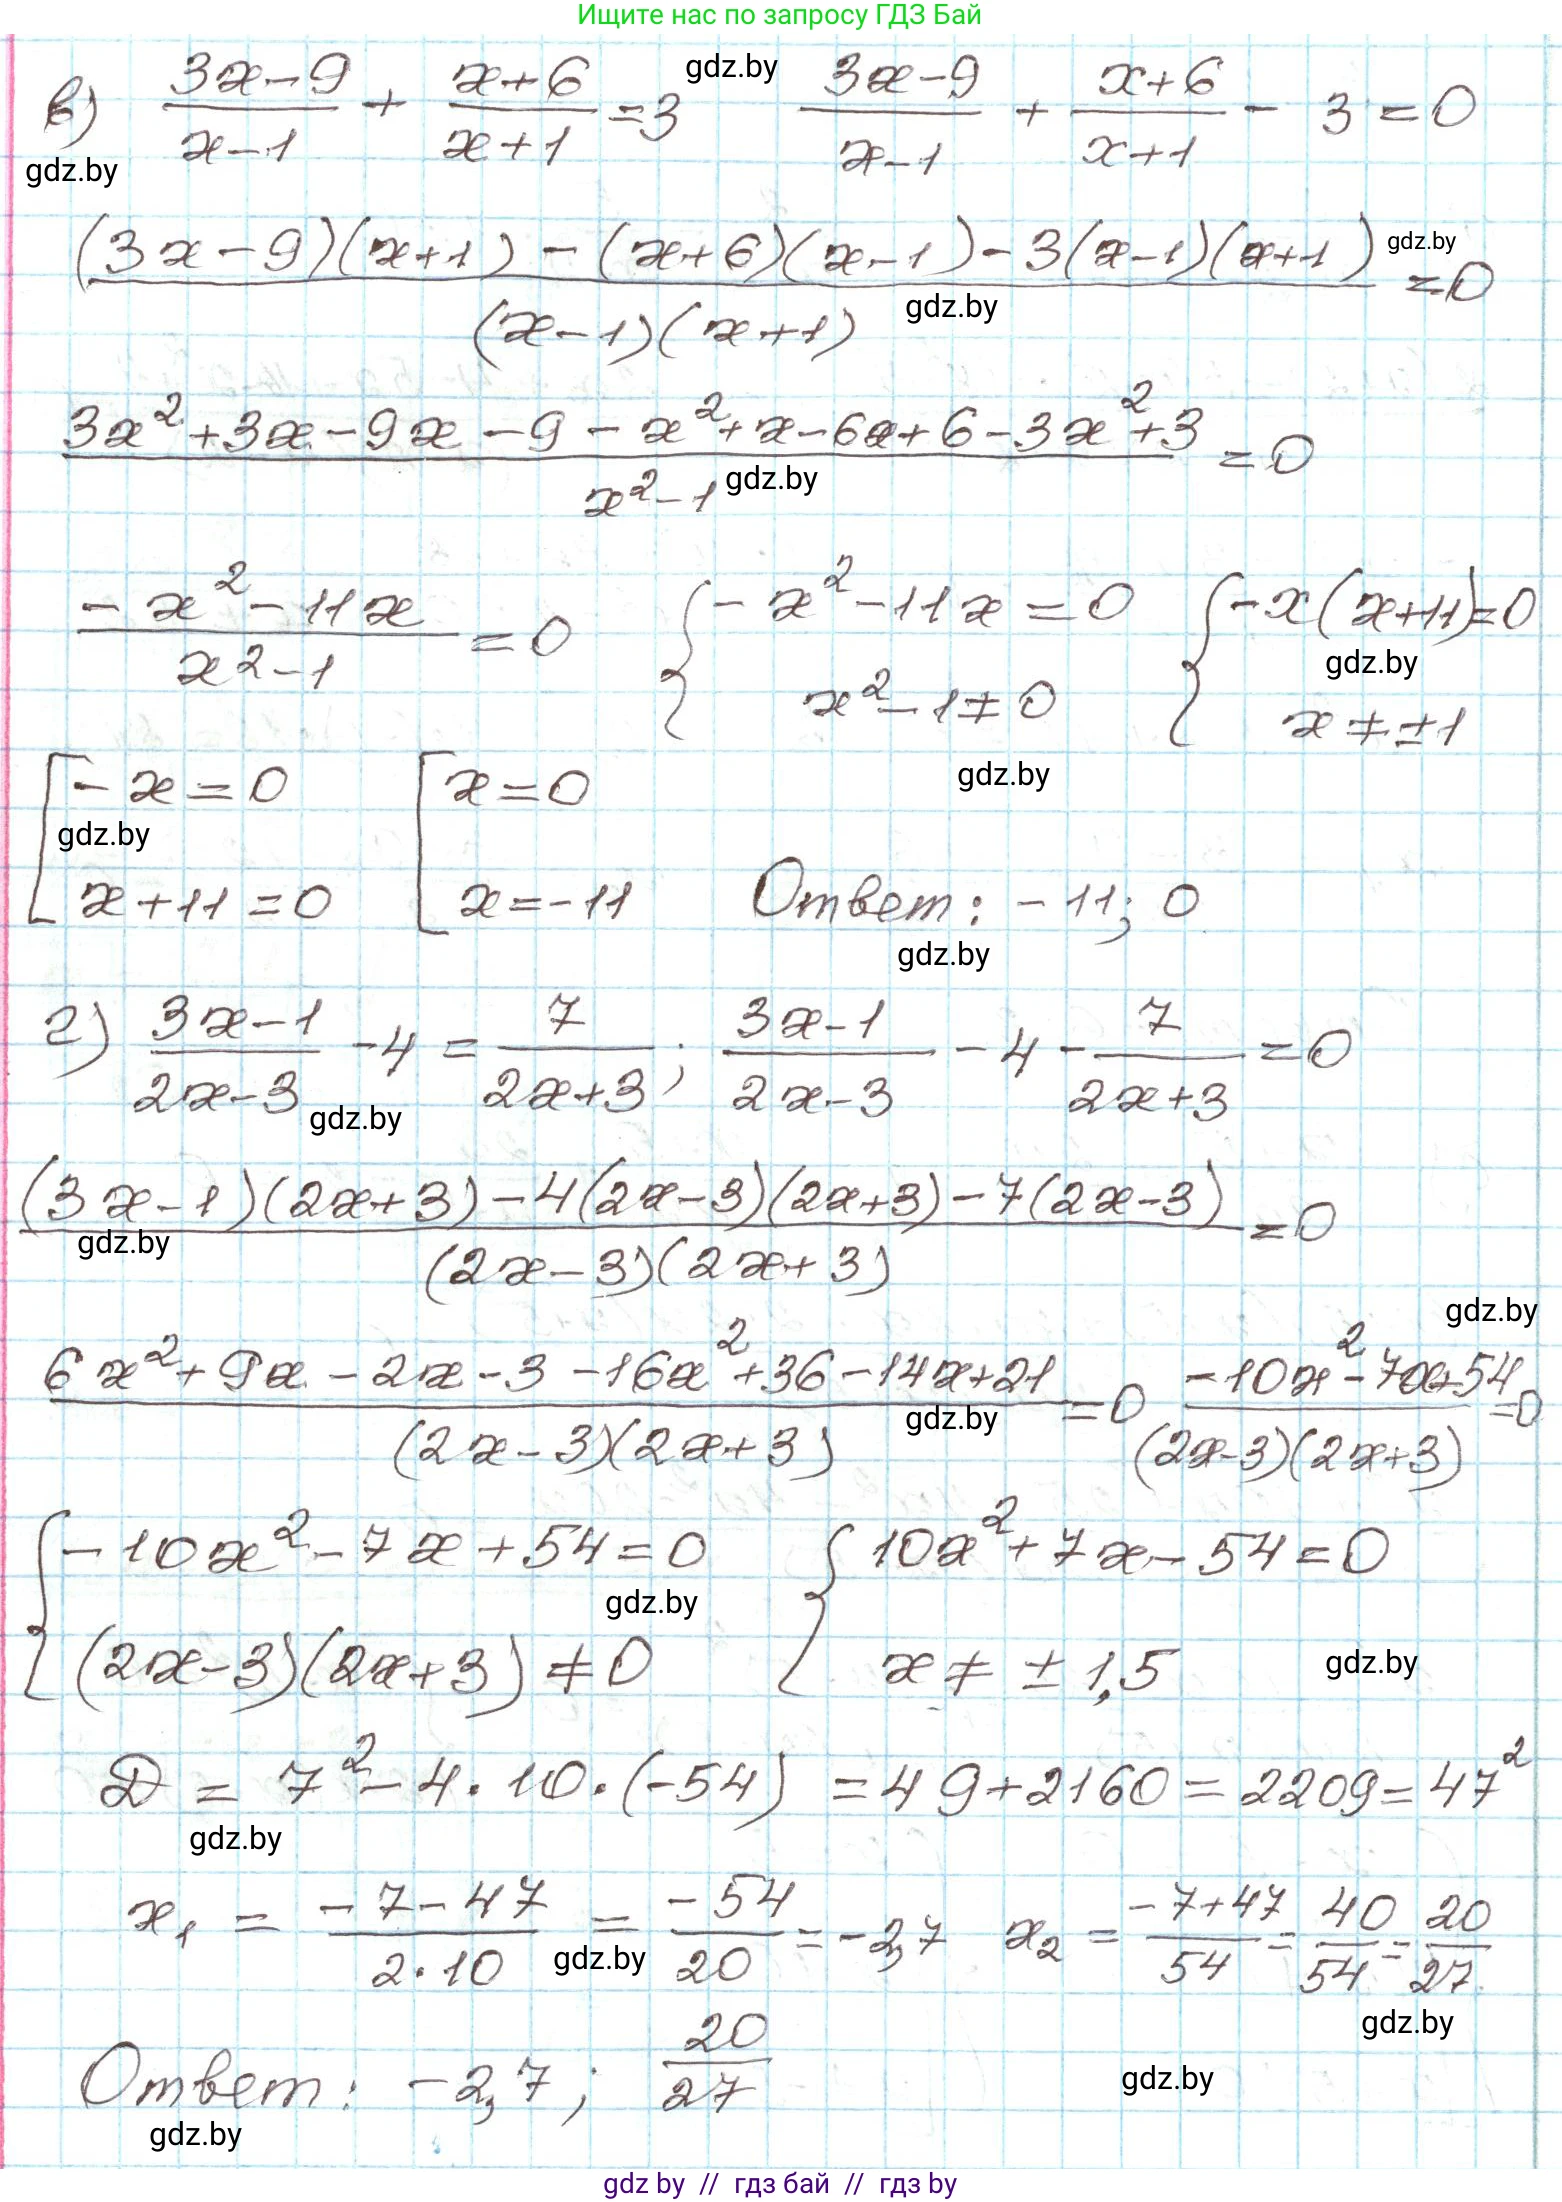 Ищите нас по запросу ГДЗ Бай
в) (3x-9)/(x-1) + (x+6)/(x+1) = 3 gdz.by (3x-9)/(x-1) + (x+6)/(x+1) - 3 = 0
gdz.by
((3x-9)(x+1) - (x+6)(x-1) - 3(x-1)(x+1))/((x-1)(x+1)) = 0 gdz.by
gdz.by
(3x² + 3x - 9x - 9 - x² + x - 6x + 6 - 3x² + 3)/(x² - 1) = 0
gdz.by
(-x² - 11x)/(x² - 1) = 0 { -x² - 11x = 0 { -x(x+11) = 0
gdz.by
x² - 1 ≠ 0 x ≠ ±1
gdz.by
[ -x = 0 [ x = 0
gdz.by
x + 11 = 0 x = -11 Ответ: -11; 0
gdz.by
г) (3x-1)/(2x-3) - 4 = 7/(2x+3); (3x-1)/(2x-3) - 4 - 7/(2x+3) = 0
gdz.by
((3x-1)(2x+3) - 4(2x-3)(2x+3) - 7(2x-3))/((2x-3)(2x+3)) = 0
gdz.by
gdz.by
(6x² + 9x - 2x - 3 - 16x² + 36 - 14x + 21)/((2x-3)(2x+3)) = 0 (-10x² - 7x + 54)/((2x-3)(2x+3)) = 0
gdz.by
{ -10x² - 7x + 54 = 0 { 10x² + 7x - 54 = 0
gdz.by
(2x-3)(2x+3) ≠ 0 x ≠ ± 1,5 gdz.by
D = 7² - 4·10·(-54) = 49 + 2160 = 2209 = 47²
gdz.by
x₁ = (-7-47)/(2·10) = -54/20 = -2,7 x₂ = (-7+47)/54 = 40/54 = 20/27
gdz.by
gdz.by
Ответ: -2,7; 20/27
gdz.by
gdz.by
gdz by // гдз бай // гдз by